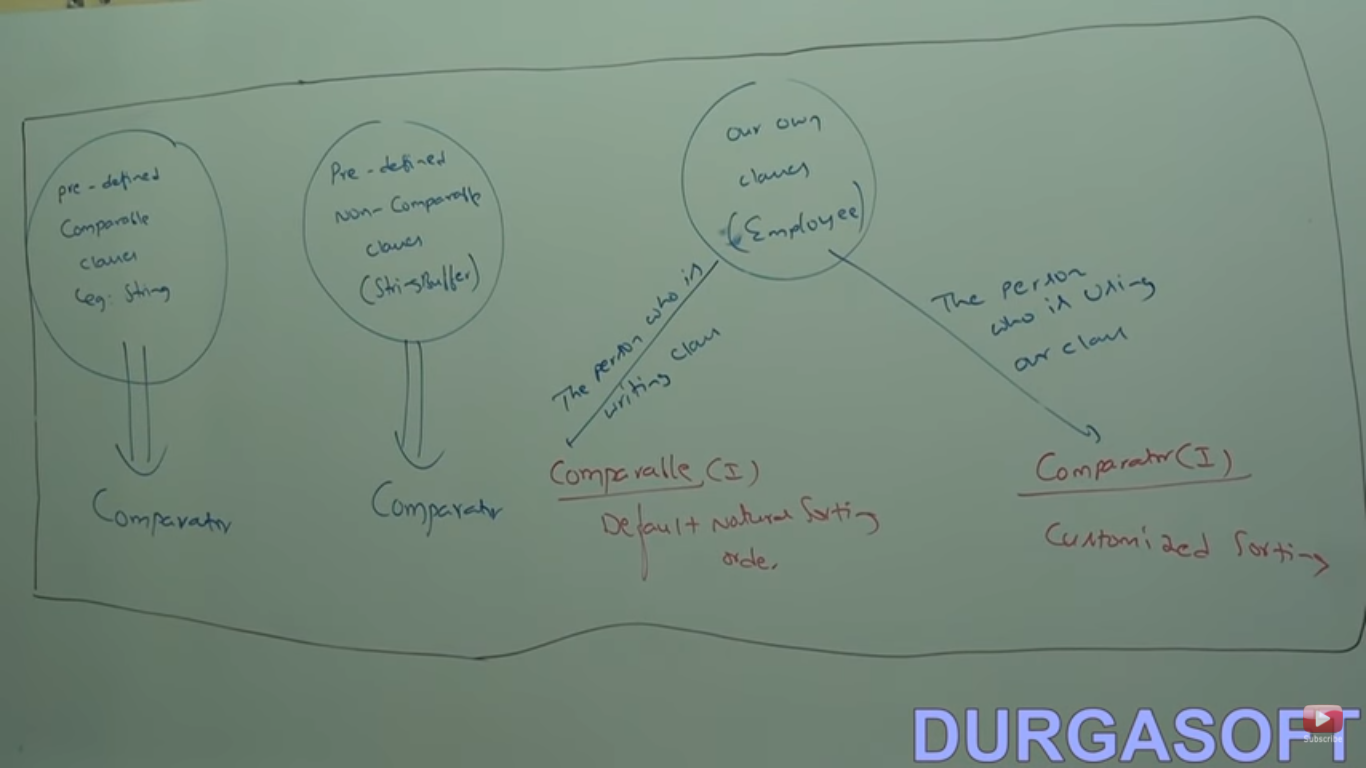 pre-defined
Comparable
classes
(eg: String
Comparator
Pre-defined
Non-Comparable
classes
(StringBuffer)
Comparator
our own
classes
(Employee)
The person who is
writing class
Comparable (I)
Default Natural Sorting
order
The person
who is using
our class
Comparator (I)
Customized Sorting
DURGASOFT
Subscribe